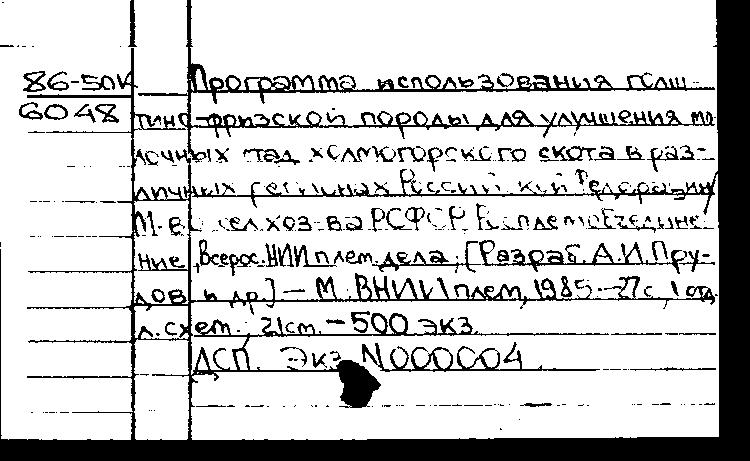 86-50К Программа использования голш-
6048 тино-фризской породы для улучшения мо
лочных стад холмогорского скота в раз-
личных регионах Российской Федерации/
М-во сел.хоз-ва РСФСР,
ние, Всерос. НИИ плем. дела; [Разраб. А.И.Пру-
дов и др.] — М.: ВНИИплем, 1985.-27с, 1 отд.
л. схем.; 21см. - 500 экз.
ДСП. Экз. N000004.